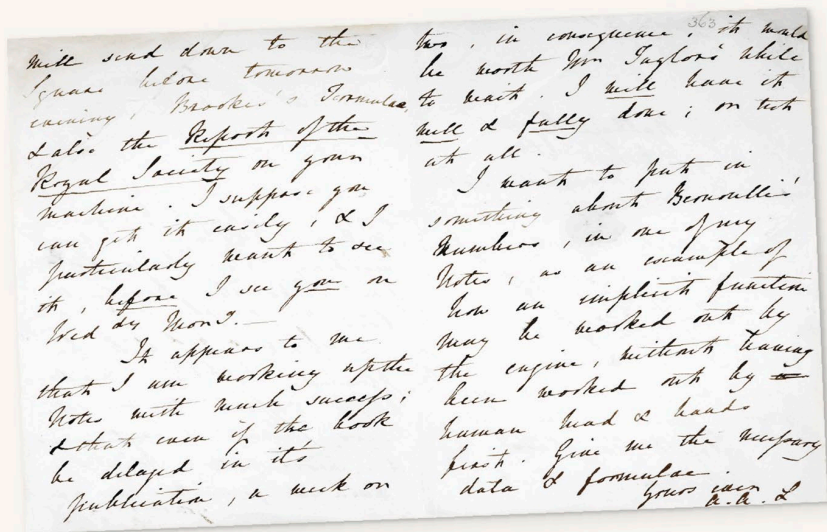 will send down to the
Square before tomorrow
evening, Brooke's Formulae,
& also the Report of the
Royal Society on your
machine. I suppose you
can get it easily, & I
particularly want to see
it, before I see you on
Wed dy Morng.—
It appears to me
that I am working up the
Notes with much success;
& that even if the book
be delayed in its
publication, a week or
363
two, in consequence, it would
be worth Mr Taylor's while
to wait. I will have it
well & fully done; or not
at all.
I want to put in
something about Bernoulli's
Numbers, in one of my
Notes, as an example of
how an implicit function
may be worked out by
the engine, without having
been worked out by
human head & hands
first. Give me the necessary
data & formulae.
Yours ever
A. A. L